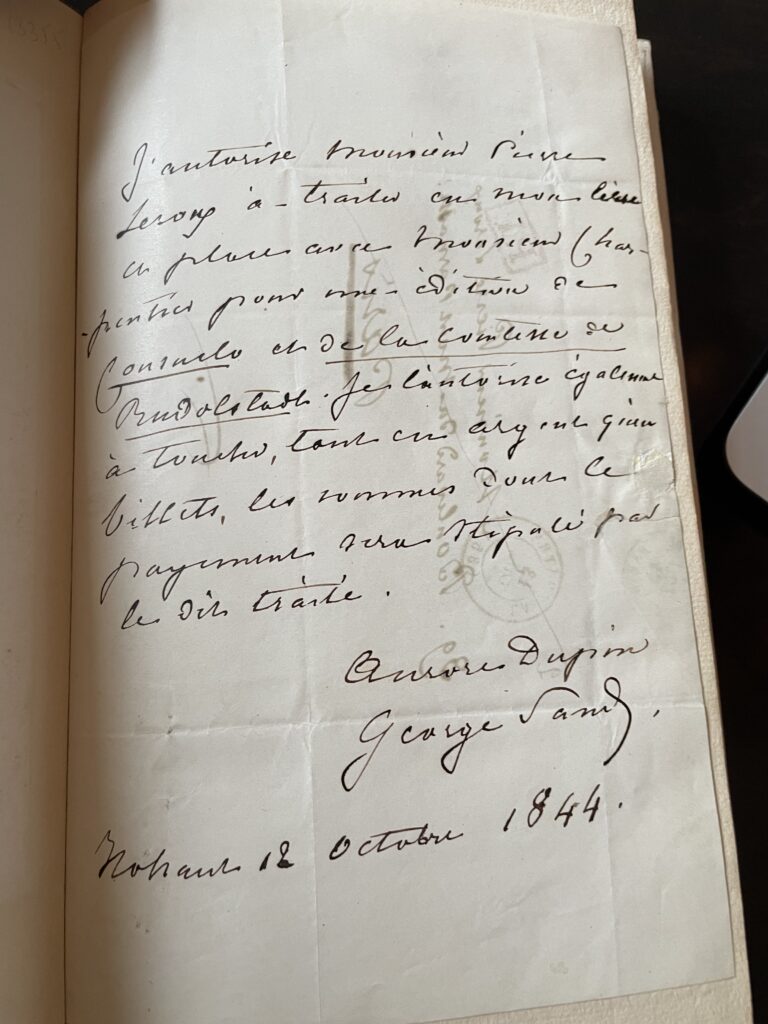 J'autorise Monsieur Pierre
Leroux à traiter en mon lieu
et place avec Monsieur Char-
-pentier pour une édition de
Consuelo et de la Comtesse de
Rudolstadt. Je l'autorise également
à toucher, tant en argent qu'en
billets, les sommes dont le
payement sera stipulé par
le dit traité.
Aurore Dupin
George Sand,
Nohant 12 Octobre 1844.